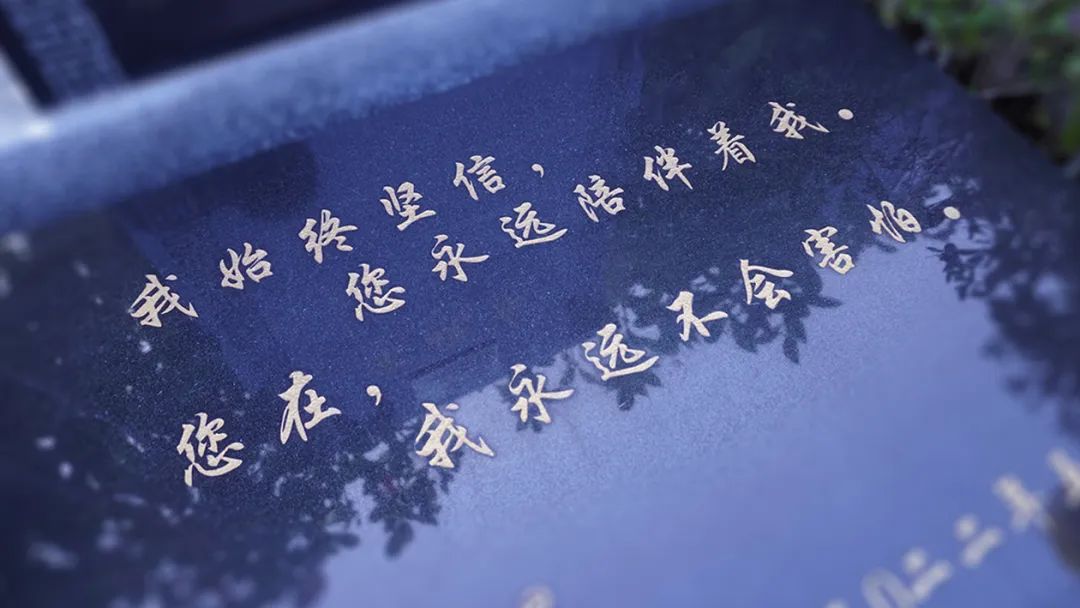 我始终坚信，
您永远陪伴着我．
您在，我永远不会害怕．